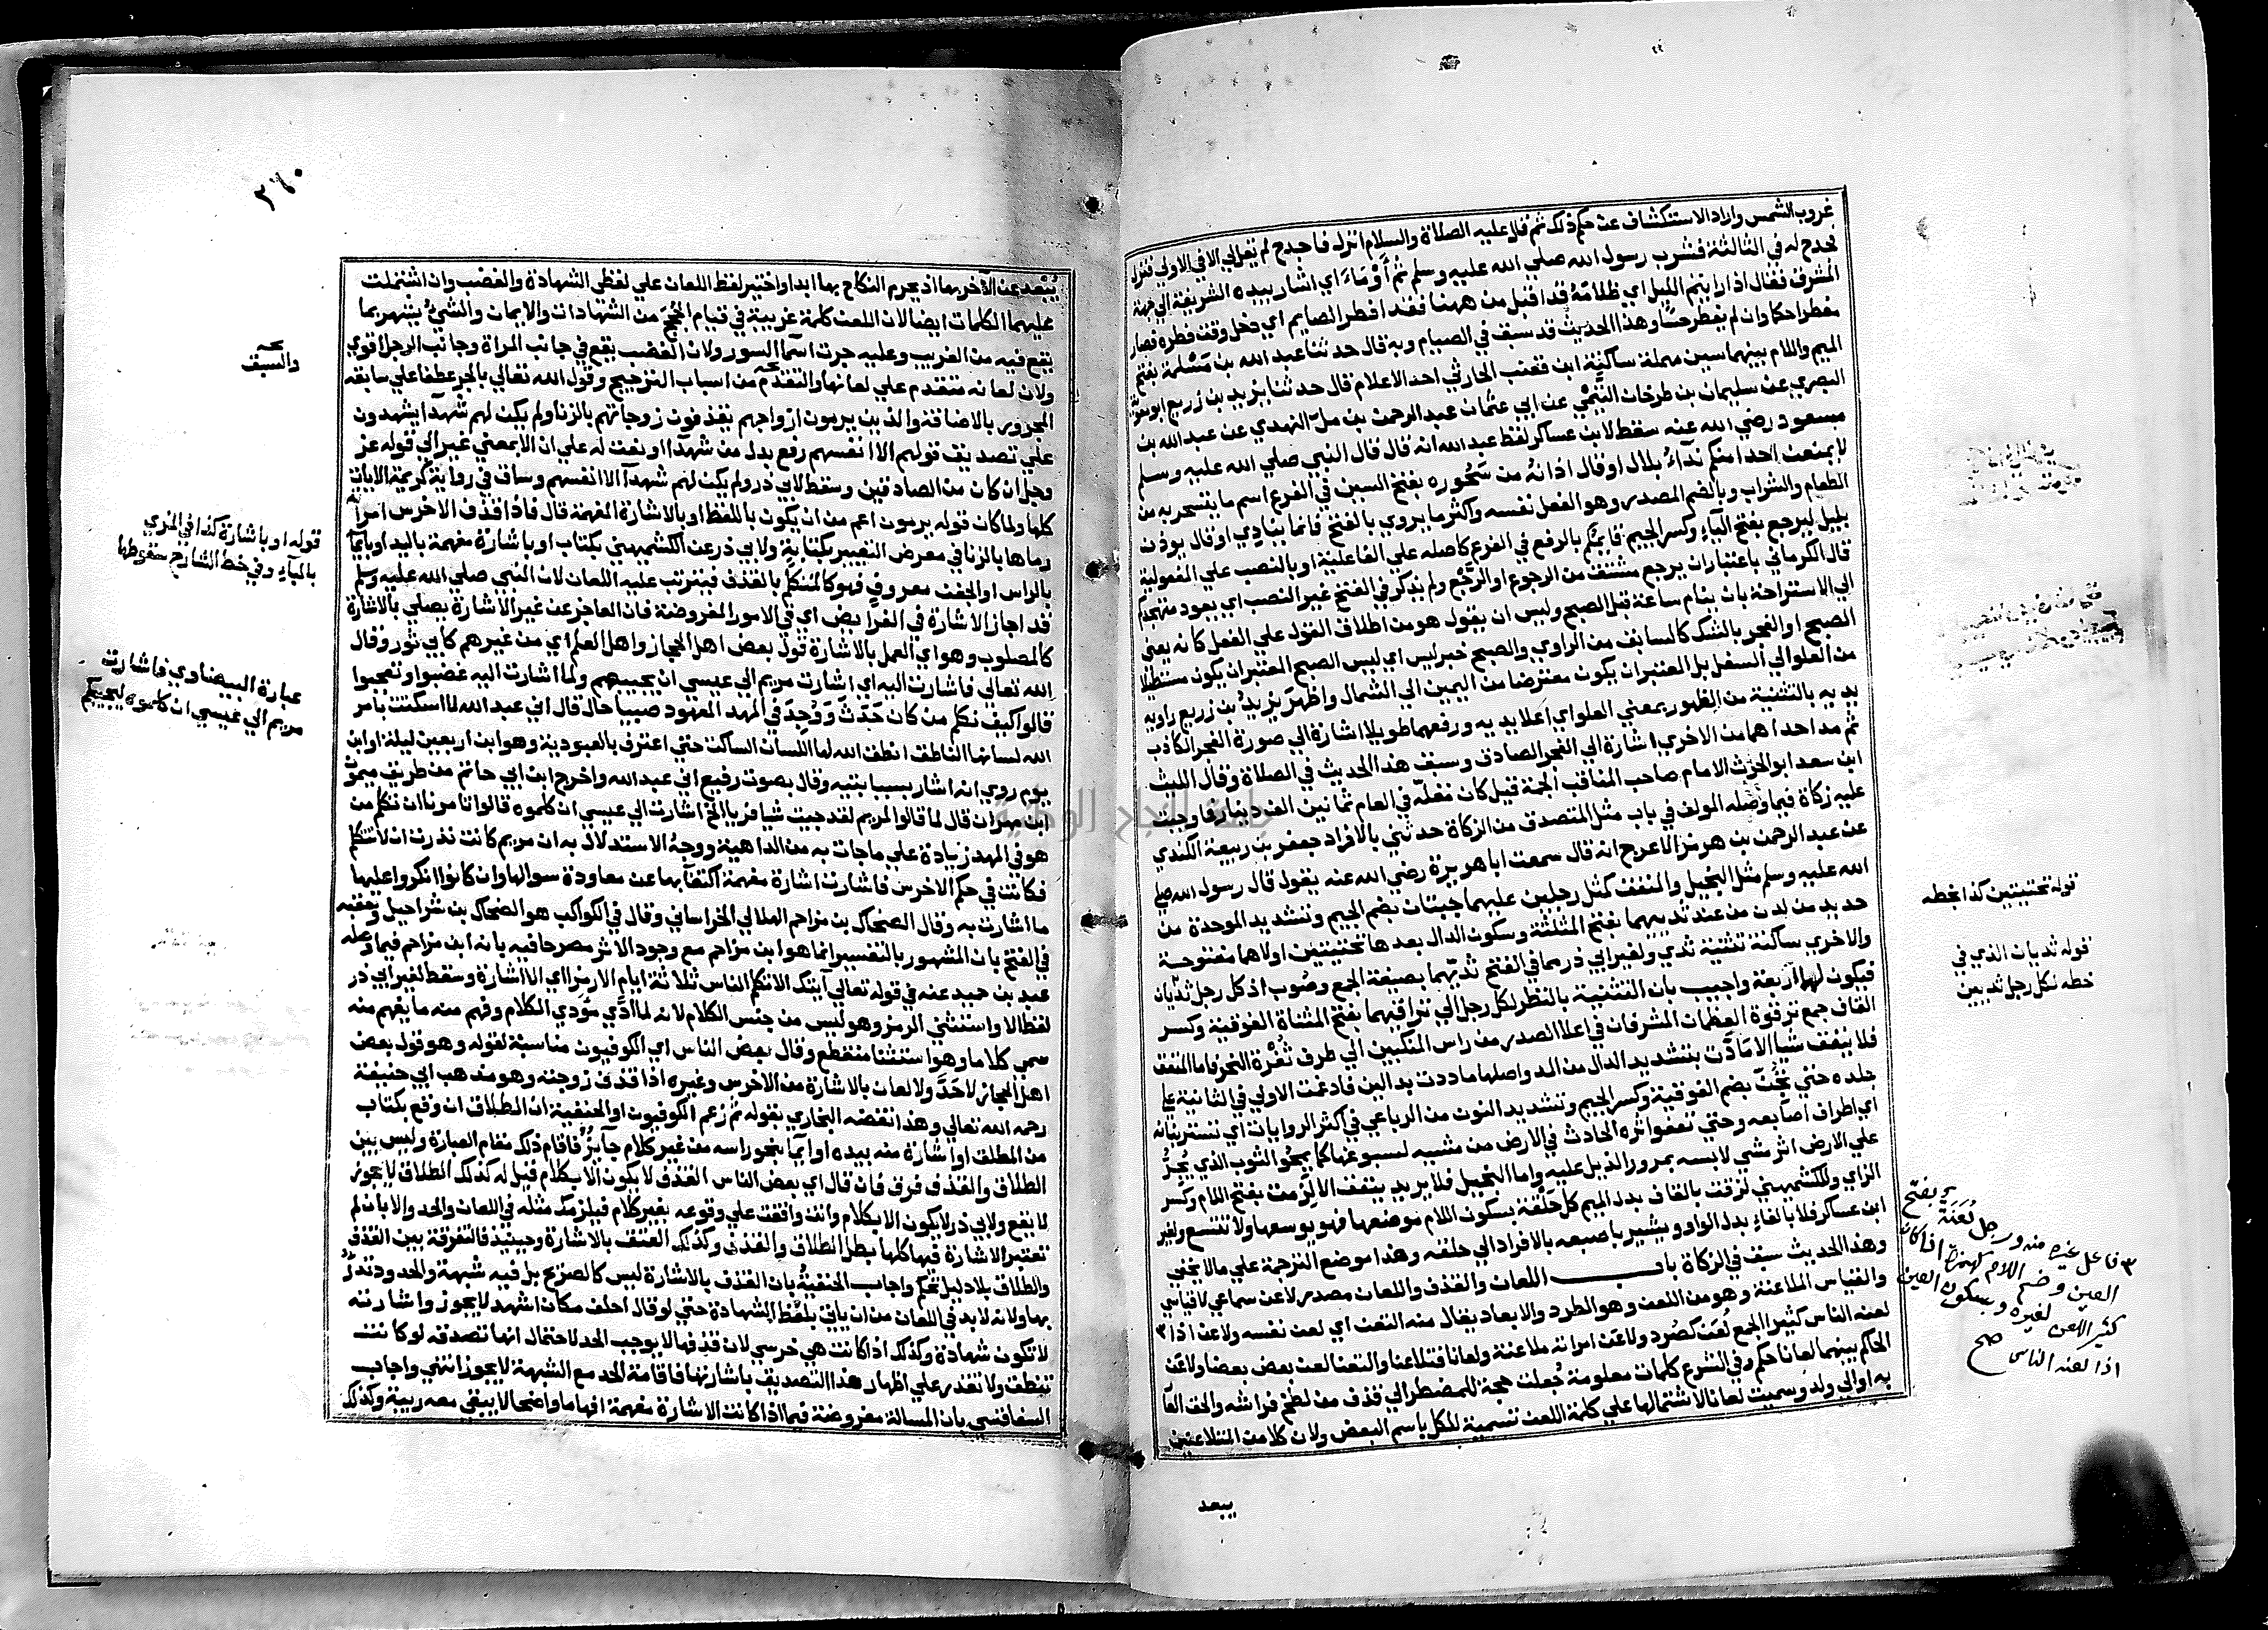 غروب الشمس واراد الاستكشاف عن حكم ذلك ثم قال عليه الصلاة والسلام انزل فاجدح لم يقل لي الا في الاولي فنزل
فجدح له في الثالثة فشرب رسول الله صلي الله عليه وسلم ثُم أَوْمَاءَ اي اشار بيده الشريفة الي جهة
المشرق فقال اذا رايتم الليل اي ظلامَهُ قد اقبل من ههنا فقد افطر الصايم اي دخل وقت فطره فصار
مفطرا حكما وان لم يفطر حسًّا وهذا الحديث قد سبق في الصيام وبه قال حدثنا عبد الله بن مَسْلمة بفتح
الميم واللام بينهما سين مهملة ساكنة ابن قعنب الحارثي احد الاعلام قال حدثنا يزيد بن زريع ابو
البصري عن سليمان بن طرخان التَّيْمِّي عن ابي عثمان عبد الرحمن بن ملّ النهدي عن عبد الله بن
مسعود رضي الله عنه سقط لابن عساكر لفظ عبد الله انه قال قال النبي صلي الله عليه وسلم
لا يمنعن احدا منكم ندآءُ بلال او قال اذانهُ من سَحُوره بفتح السين في الفرع اسم ما يتسحر به من
الطعام والشراب وبالضم المصدر وهو الفعل نفسه واكثر ما يروي بالفتح فانما ينادي او قال يوذن
بليل ليرجع بفتح اليآء وكسر الجيم قايمُكُم بالرفع في الفرع كاصله علي الفاعلية او بالنصب علي المفعولية
قال الكرماني باعتبار ان يرجع مشتق من الرجوع او الرَّجْع ولم يذكر في الفتح غير النصب اي يعود متهجدكم
الي الاستراحة بان ينام ساعة قبل الصبح وليس ان يقول هو من اطلاق القول علي الفعل كانه يعني
الصبح او الفجر بالشك كالسابق من الراوي والصبح خبر ليس اي ليس الصبح المعتبر ان يكون مستطيلا
من العلو الي السفل بل المعتبر ان يكون معترضا من اليمين الي الشمال واظهرَ يزيدُ بن زريع راويه
يديه بالتثنية من الظهور بمعني العلو اي اَعلا يديه ورفعهما طويلا اشارة الي صورة الفجر الكاذب
ثم مد احداهما من الاخري اشارة الي الفجر الصادق وسبق هذا الحديث في الصلاة وقال الليث
ابن سعد ابو الحرث الامام صاحب المناقب الجمة قيل كان مغلّه في العام ثمانين الف دينار فما وجبت
عليه زكاة فيما وَصله المولف في باب مثل المتصدق من الزكاة حدثني بالافراد جعفر بن ربيعة الكندي
عن عبد الرحمن بن هرمز الاعرج انه قال سمعت ابا هريرة رضي الله عنه يقول قال رسول الله صلي
الله عليه وسلم مثل البخيل والمنفق كمثل رجلين عليهما جبتان بضم الجيم وتشديد الموحدة من
حديد من لدن من عند ثدييهما بفتح المثلثة وسكون الدال بعدها تحتيتين اولاهما مفتوحة
والاخري ساكنة تثنية ثدي ولغير ابي ذر مما في الفتح ثُديّهما بصيغة الجمع وصُوب اذ كل رجل ثَدْيان
فيكون لهما اربعة واجيب بان التثنية بالنظر لكل رجل الي تراقيهما بفتح المثناة الفوقية وكسر
القاف جمع ترقوة العظمات المشرفات في اعلا الصدر من راس المنكبين الي طرف ثُغْرة النحر فاما المنفق
فلا ينفق شيا الا مَادَّت بتشديد الدال من المد واصلها ماددت بدالين فادغمت الاولي في الثانية علي
جلده حتي تُجِنّ بضم الفوقية وكسر الجيم وتشديد النون من الرباعي في اكثر الروايات اي تستر بنانه
اي اطراف اصابعه وحتي تعفو اثره الحادث في الارض من مشيه لسبوغها كما يمحو الثوب الذي يُجَرُّ
علي الارض اثر مشي لابسه بمرور الذيل عليه واما البخيل فلا يريد ينفق الا لَزِمت بفتح اللام وكسر
الزاي وللكشميهني لزقت بالقاف بدل الميم كل حَلْقة بسكون اللام موضعها فهو يوسعها ولا تتسع ولغير
ابن عساكر فلا بالفاءِ بدل الواو ويشير باصبعه بالافراد الي حلقه وهذا موضع الترجمة علي ما لا يخفي
وهذا الحديث سبق في الزكاة باب اللعان والقذف واللعان مصدر لاعن سماعي لا قياسي
والقياس الملاعنة وهو من اللعن وهو الطرد والابعاد يقال منه التعن اي لعن نفسه ولاعن اذا ٣
لعنه الناس كثيرا الجمع لُعَن كصُرَد ولاعَن امراته ملاعنة ولعانا فتلاعنا والتعنا لعن بعض بعضا ولاعَن
الحاكم بينهما لعانا حكم وفي الشرع كلمات معلومة جُعلت حجة للمضطر الي قذف من لطخ فراشه والحق العار
به او الي ولد وسميت لعانا لاشتمالها علي كلمة اللعن تسمية للكل باسم البعض ولان كلا من المتلاعنين
يبعد
قوله تحتيتين كذا بخطه
قوله ثديان الذي في
خطه لكل رجل ثديين
٣ فاعل غيره منه ورجل لُعَنَة بفتح
العين وضم اللام كهمزة اذا كان
كثير اللعن لغيره وبسكون العين
اذا لعنه الناس صح
٢٦٠
يُبْعَد عن الآخر بها اذ يحرم النكاح بها ابدا واختير لفظ اللعان علي لفظي الشهادة والغضب وان اشتملت
عليهما الكلمات ايضا لان اللعن كلمة غريبة في قيام الحُجَج من الشهادات والايمان والشيءُ يشتهر بما
يقع فيه من الغريب وعليه جرت اسمآ السور ولان الغضب يقع في جانب المراة وجانب الرجل اقوي
ولان لعانه متقدم علي لعانها والتقدم من اسباب الترجيح وقول الله تعالي بالجر عطفا علي سابقه
المجرور بالاضافة والذين يرمون ازواجهم يقذفون زوجاتهم بالزنا ولم يكن لهم شهدآ يشهدون
علي تصديق قولهم الا انفسهم رفع بدل من شهدآ او نعت له علي ان الا بمعني غير الي قوله عز
وجل ان كان من الصادقين وسقط لابي ذر ولم يكن لهم شهدآ الا انفسهم وساق في رواية كريمة الايات
كلها ولما كان قوله يرمون اعم من ان يكون باللفظ او بالاشارة المفهمة قال فاذا قذف الاخرس امراته
رماها بالزنا في معرض التعيير بكتابةٍ ولابي ذر عن الكشميهني بكتاب او باشارة مفهمة باليد او بايمآ
بالراس او الجفن معروفٍ فهو كالمتكلم بالقذف فيترتب عليه اللعان لان النبي صلي الله عليه وسلم
قد اجاز الاشارة في الفرايض اي في الامور المفروضة فان العاجز عن غير الاشارة يصلي بالاشارة
كالمصلوب وهو اي العمل بالاشارة قول بعض اهل الحجاز واهل العلم اي من غيرهم كابي ثور وقال
الله تعالي فاشارت اليه اي اشارت مريم الي عيسي ان يجيبهم ولما اشارت اليه غضبوا وتعجبوا
قالوا كيف نكلم من كان حَدَثَ وَوُجِدَ في المهد المعهود صبيا حال قال اني عبد الله لما اسكتت بامر
الله لسانها الناطق انطق الله لها اللسان الساكت حتي اعترف بالعبودية وهو ابن اربعين ليلة او ابن
يوم روي انه اشار بسبابته وقال بصوت رفيع اني عبد الله واخرج ابن ابي حاتم من طريق ميمون
ابن مهران قال لما قالوا لمريم لقد جيت شيا فريا الخ اشارت الي عيسي ان كلموه قالوا تامرنا ان نكلم من
هو في المهد زيادة علي ماجات به من الداهية ووجهُ الاستدلال به ان مريم كانت نذرت ان لا تتكلم
فكانت في حكم الاخرس فاشارت اشارة مفهمة اكتفا بها عن معاودة سوالها وان كانوا انكروا عليها
ما اشارت به وقال الضحاك بن مزاحم الهلالي الخراساني وقال في الكواكب هو الضحاك بن شراحيل وتعقبه
في الفتح بان المشهور بالتفسير انما هو ابن مزاحم مع وجود الاثر مصرحا فيه بانه ابن مزاحم فيما وصله
عبد بن حميد عنه في قوله تعالي آيتك الا تكلم الناس ثلاثة ايام الا رمزا اي الا اشارة وسقط لغير ابي ذر
لفظ الا واستثني الرمز وهو ليس من جنس الكلام لانه لما ادَّي مُوَدي الكلام وفهم منه ما يفهم منه
سمي كلاما وهو استثنا منقطع وقال بعض الناس اي الكوفيون مناسبة لقوله وهو قول بعض
اهل الحجاز لا حَدَّ ولا لعان بالاشارة من الاخرس وغيره اذا قذف زوجته وهو مذهب ابي حنيفة
رحمه الله تعالي وهذا نقضه البخاري بقوله ثم زعم الكوفيون او الحنفية ان الطلاق ان وقع بكتاب
من المطلق او اشارة منه بيده او ايمآ بنحو راسه من غير كلام جآيزٌ فاقام ذلك مقام العبارة وليس بين
الطلاق والقذف فرق فان قال اي بعض الناس القذف لا يكون الا بكلام قيل له كذلك الطلاق لا يجوز
لا يقع ولابي ذر لا يكون الا بكلام وانت وافقت علي وقوعه بغير كلام فيلزمك مثله في اللعان والحد والا بان لم
تعتبر الاشارة فيها كلها بطل الطلاق والقذف وكذلك العتق بالاشارة وحينيذ فالتفرقة بين القذف
والطلاق بلا دليل تحكم واجاب الحنفية بان القذف بالاشارة ليس كالصريح بل فيه شبهة والحدود تدرُ
بها ولانه لا بد في اللعان من ان ياتي بلفظ الشهادة حتي لو قال احلف مكان اشهد لا يجوز واشارته
لا تكون شهادة وكذلك اذا كانت هي خرسي لان قذفها لا يوجب الحد لاحتمال انها تصدقه لو كانت
تنطق ولا تقدر علي اظهار هذا التصديق باشارتها فاقامة الحد مع الشبهة لا يجوز انتهي واجاب
السفاقسي بان المسالة مفروضة فيما اذا كانت الاشارة مفهمة افهاما واضحا لا يبقي معه ريبة وكذلك
والسبق
قوله او باشارة كذا في المزي
بالبآء وفي خط الشارح سقوطها
عبارة البيضاوي فاشارت
مريم الي عيسي ان كلموه ليجيبكم